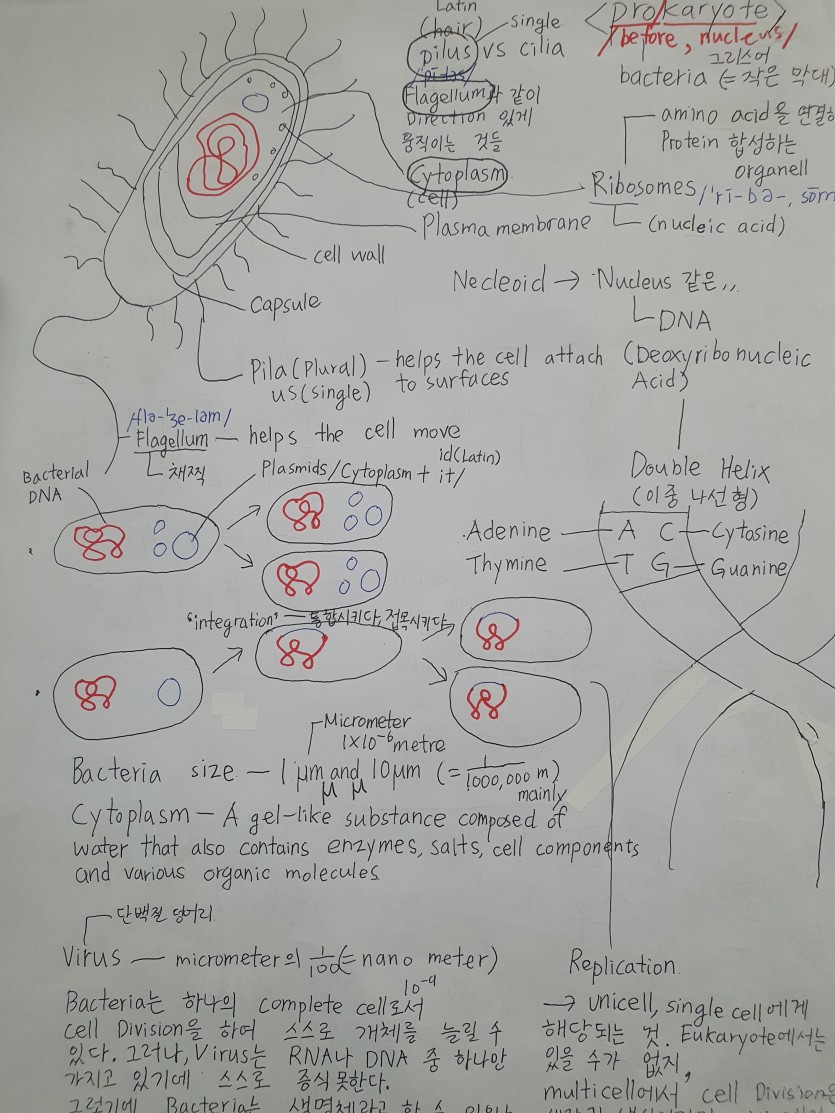 Latin
(hair)
pilus vs cilia
single
<prokaryote>
/before, nucleus/
그리스어
bacteria (= 작은 막대)
Flagellum과 같이
Direction 있게
움직이는 것들
Cytoplasm
(cell)
amino acid을
Protein 합성하는
organell
Ribosomes /'rī-bə-, sōm
(nucleic acid)
Plasma membrane
cell wall
Capsule
Necleoid → Nucleus 같은,,
DNA
(Deoxyribonucleic
Acid)
Pila (Plural) – helps the cell attach
us (single) to surfaces
/flə-ʒe-ləm/
Flagellum — helps the cell move
채찍
Bacterial
DNA
Plasmids/Cytoplasm + it/
id(Latin)
Double Helix
(이중 나선형)
Adenine A C Cytosine
Thymine T G Guanine
"integration" — 통합시키다, 접목시키다
Micrometer
1X10-6 metre
Bacteria size — 1 μm and 10μm (= 1/1000,000 m)
μ μ
mainly
Cytoplasm — A gel-like substance composed of
water that also contains enzymes, salts, cell components
and various organic molecules.
단백질 덩어리
Virus — micrometer의 1/100(= nano meter)
10-9
Bacteria는 하나의 complete cell로서
cell Division을 하여 스스로 개체를 늘릴 수
있다. 그러나, Virus는 RNA나 DNA 중 하나만
가지고 있기에 스스로 증식 못한다.
그렇기에 Bacteria는 생명체라고 할 수
Replication.
→ unicell, single cell에게
해당되는 것. Eukaryote에서는
있을 수가 없지,
multicell에서 cell Division은